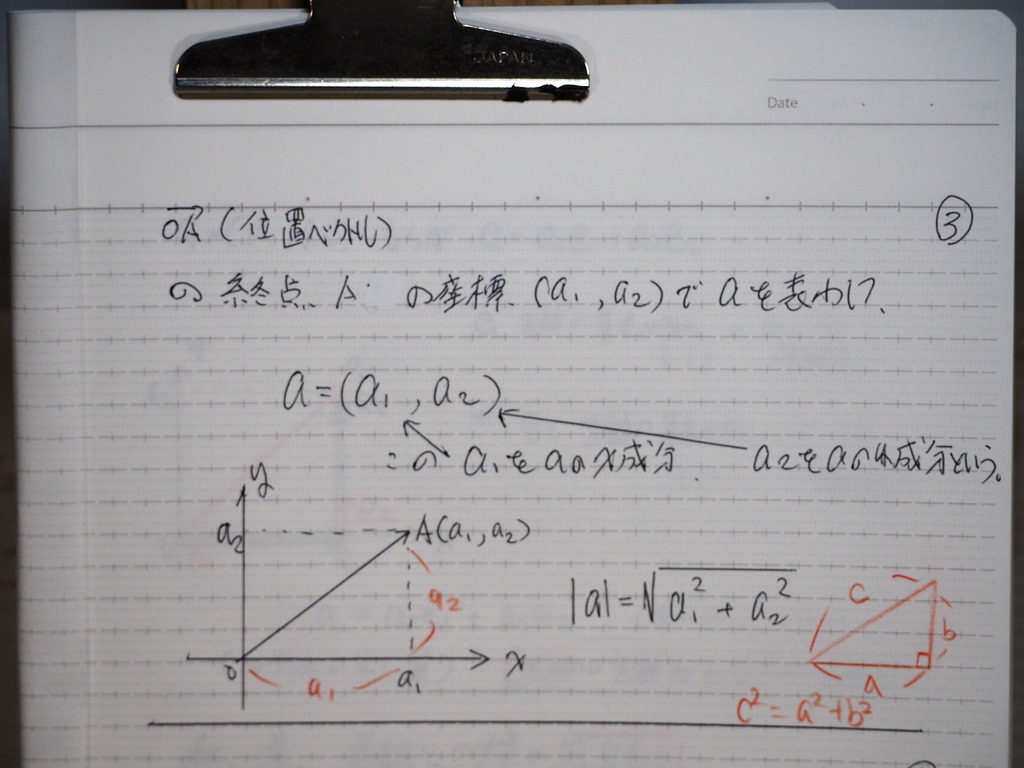 JAPAN
Date
OA (位置ベクトル) ③
の終点 A の座標 (a1, a2) で a を表わし、
a = (a1, a2)
この a1 を a の x 成分 a2 を a の y 成分という。
y
a2 A(a1, a2)
a2
|a| = √a1² + a2²
c
b
0 a1 a1 x
a
c² = a² + b²